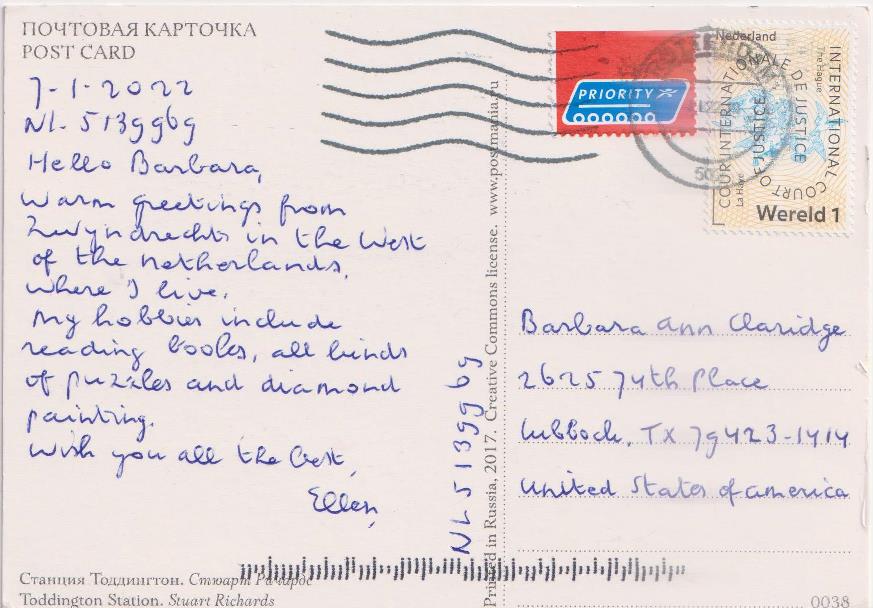 ПОЧТОВАЯ КАРТОЧКА
POST CARD
7-1-2022
NL-5139969
Hello Barbara,
Warm greetings from
Zwyndrecht in the West
of the Netherlands,
where I live.
My hobbies include
reading books, all kinds
of puzzles and diamond
painting.
Wish you all the best,
Ellen,
NL 5139969
Printed in Russia, 2017. Creative Commons license. www.postmania.ru
PRIORITY
Nederland
INTERNATIONAL COURT OF JUSTICE
COUR INTERNATIONALE DE JUSTICE
The Hague
La Haye
Wereld 1
Barbara Ann Claridge
2625 74th Place
Lubbock, TX 79423-1414
United States of america
Станция Тоддингтон. Стюарт Ричардс
Toddington Station. Stuart Richards
0038